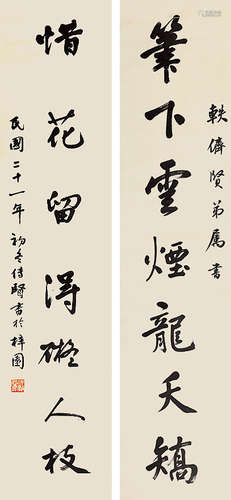 軼儕賢弟屬書
筆下雲煙龍夭矯
惜花留得礙人枝
民國二十一年初冬傳賢書於梓園